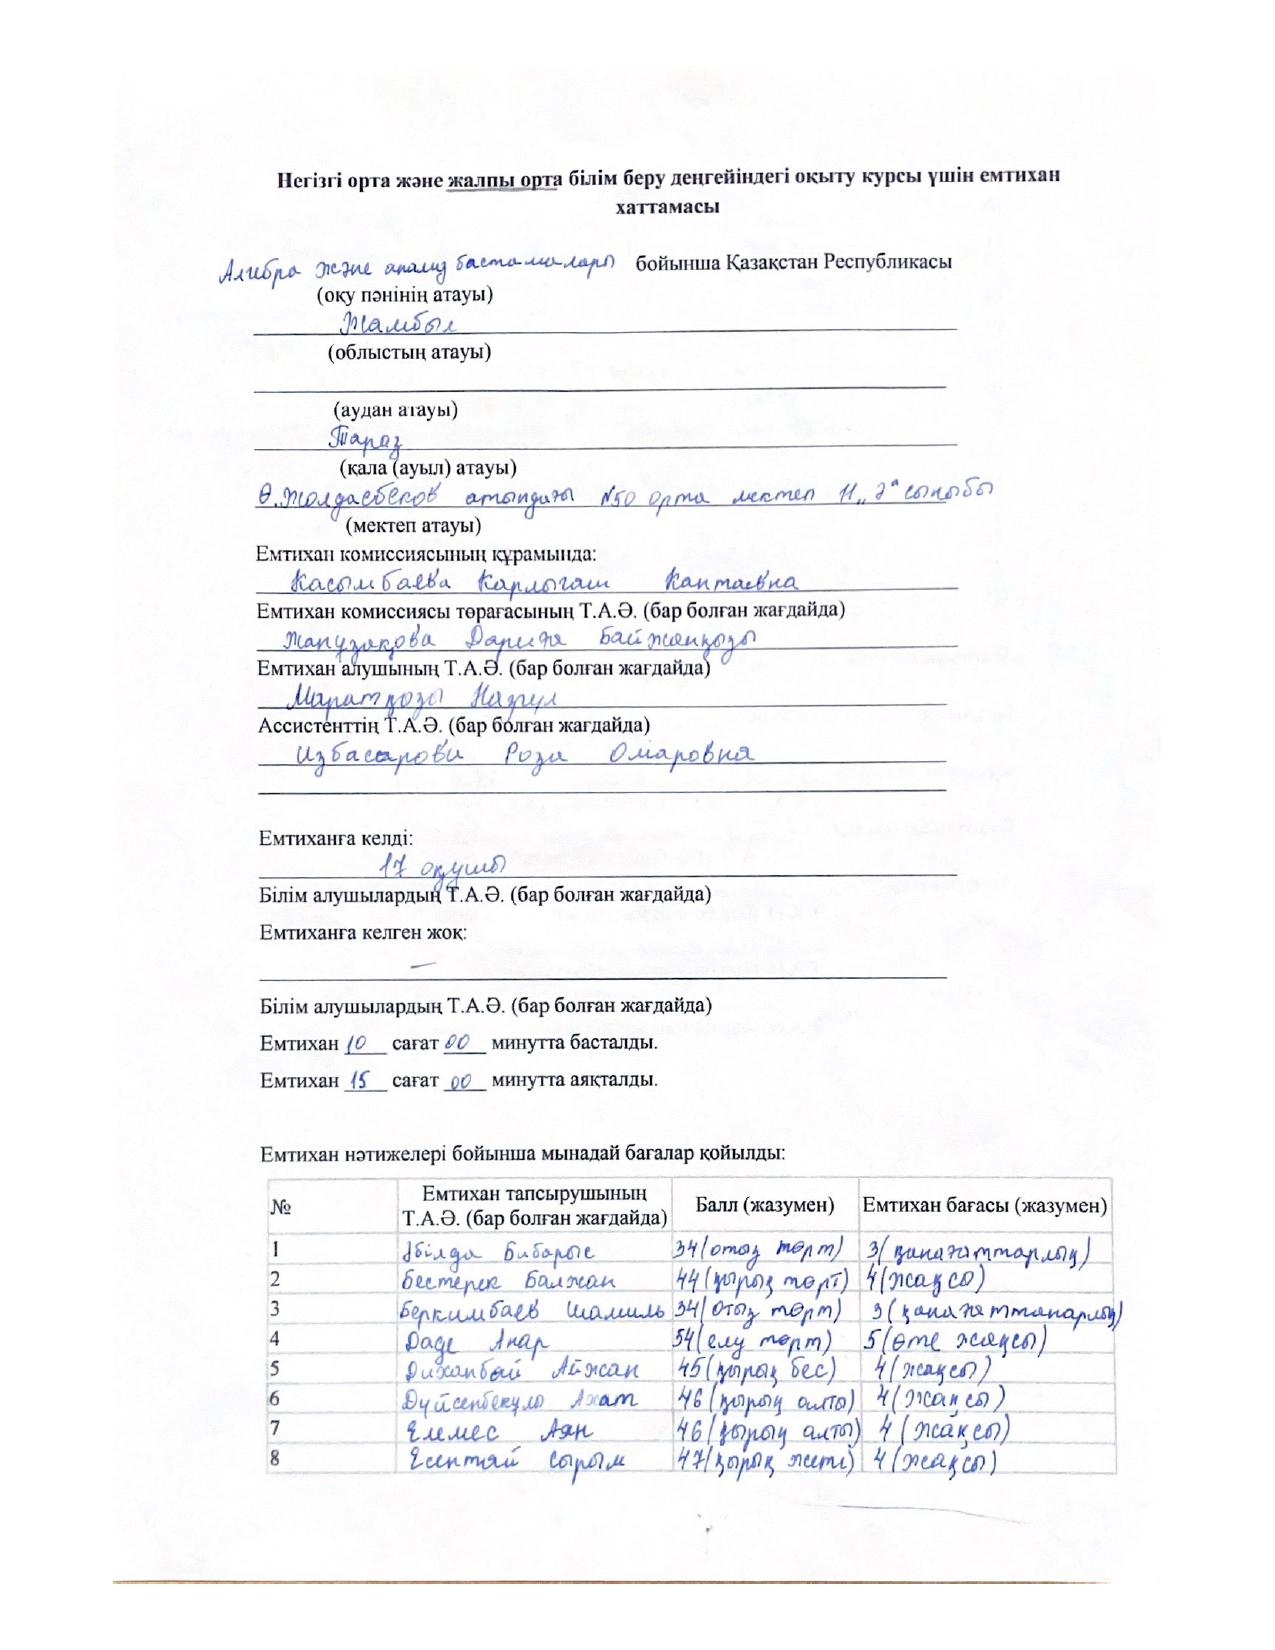 Негізгі орта және жалпы орта білім беру деңгейіндегі оқыту курсы үшін емтихан
хаттамасы
Алгебра және анализ бастамалары бойынша Қазақстан Республикасы
(оқу пәнінің атауы)
Жамбыл
(облыстың атауы)
(аудан атауы)
Тараз
(қала (ауыл) атауы)
Ө.Жолдасбеков атындағы №50 орта мектеп 11 „Ә" сыныбы
(мектеп атауы)
Емтихан комиссиясының құрамында:
Касымбаева Карлыгаш Каптаевна
Емтихан комиссиясы төрағасының Т.А.Ә. (бар болған жағдайда)
Жапузакова Дариға Байжанқызы
Емтихан алушының Т.А.Ә. (бар болған жағдайда)
Маратқызы Назгул
Ассистенттің Т.А.Ә. (бар болған жағдайда)
Избасарова Роза Омаровна
Емтиханға келді:
17 оқушы
Білім алушылардың Т.А.Ә. (бар болған жағдайда)
Емтиханға келген жоқ:
–
Білім алушылардың Т.А.Ә. (бар болған жағдайда)
Емтихан 10 сағат 00 минутта басталды.
Емтихан 15 сағат 00 минутта аяқталды.
Емтихан нәтижелері бойынша мынадай бағалар қойылды:
№ Емтихан тапсырушының Т.А.Ә. (бар болған жағдайда) Балл (жазумен) Емтихан бағасы (жазумен)
1 Әбілда Бибарыс 34 (отыз төрт) 3 (қанағаттарлық)
2 Бестерек Балжан 44 (қырық төрт) 4 (жақсы)
3 Беркимбаев Шамиль 34 (отыз төрт) 3 (қанағаттанарлық)
4 Даде Анар 54 (елу төрт) 5 (өте жақсы)
5 Диханбай Айжан 45 (қырық бес) 4 (жақсы)
6 Дүйсенбекұлы Ахат 46 (қырық алты) 4 (жақсы)
7 Елемес Аян 46 (қырық алты) 4 (жақсы)
8 Есентай Сырым 47 (қырық жеті) 4 (жақсы)